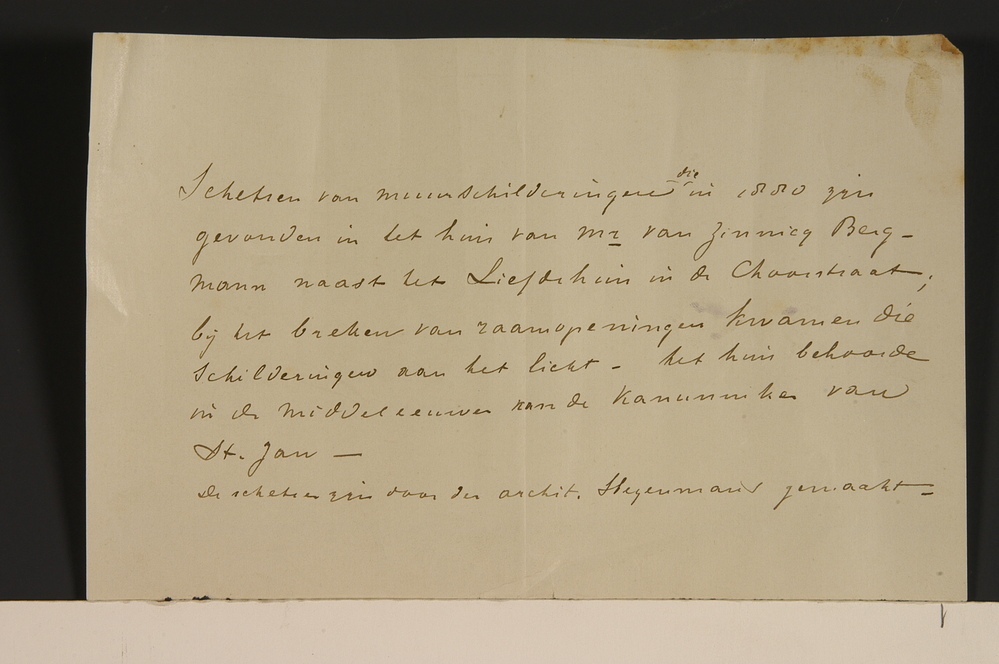 Schetsen van muurschilderingen die in 1880 zijn
gevonden in het huis van Mr van Zinnicq Berg-
mann naast het Liefdehuis in de Choorstraat;
bij het breken van raamopeningen kwamen die
schilderingen aan het licht - het huis behoorde
in de Middeleeuwen aan de Kanunniken van
St. Jan -
De schetsen zijn door den archit. Stegemans gemaakt -